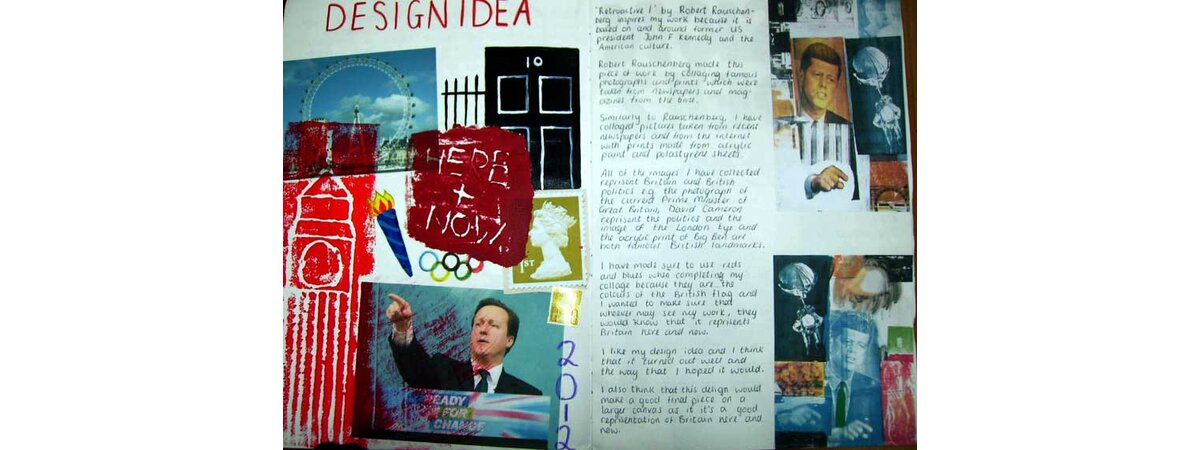 DESIGN IDEA
10
HERE
+
NOW.
1ST
EADY
FOR
CHANGE
2012
'Retroactive 1' by Robert Rauschen-
berg inspires my work because it is
based on and around former US
president John F Kennedy and the
American culture.
Robert Rauschenberg made this
piece of work by collaging famous
photographs and prints which were
taken from newspapers and mag-
azines from the time.
Similarly to Rauschenberg, I have
collaged pictures taken from recent
newspapers and from the internet
with prints made from acrylic
paint and polastyrene sheets.
All of the images I have collected
represent Britain and British
politics e.g. the photograph of
the current Prime Minister of
Great Britain, David Cameron
represent the politics and the
image of the London Eye and
the acrylic print of Big Ben are
both famous British landmarks.
I have made sure to use reds
and blues when completing my
collage because they are the
colours of the British flag and
I wanted to make sure that
whoever may see my work, they
would know that it represents
Britain here and now.
I like my design idea and I think
that it turned out well and
the way that I hoped it would.
I also think that this design would
make a good final piece on a
larger canvas as it it's a good
reprisentation of Britain here and
now.